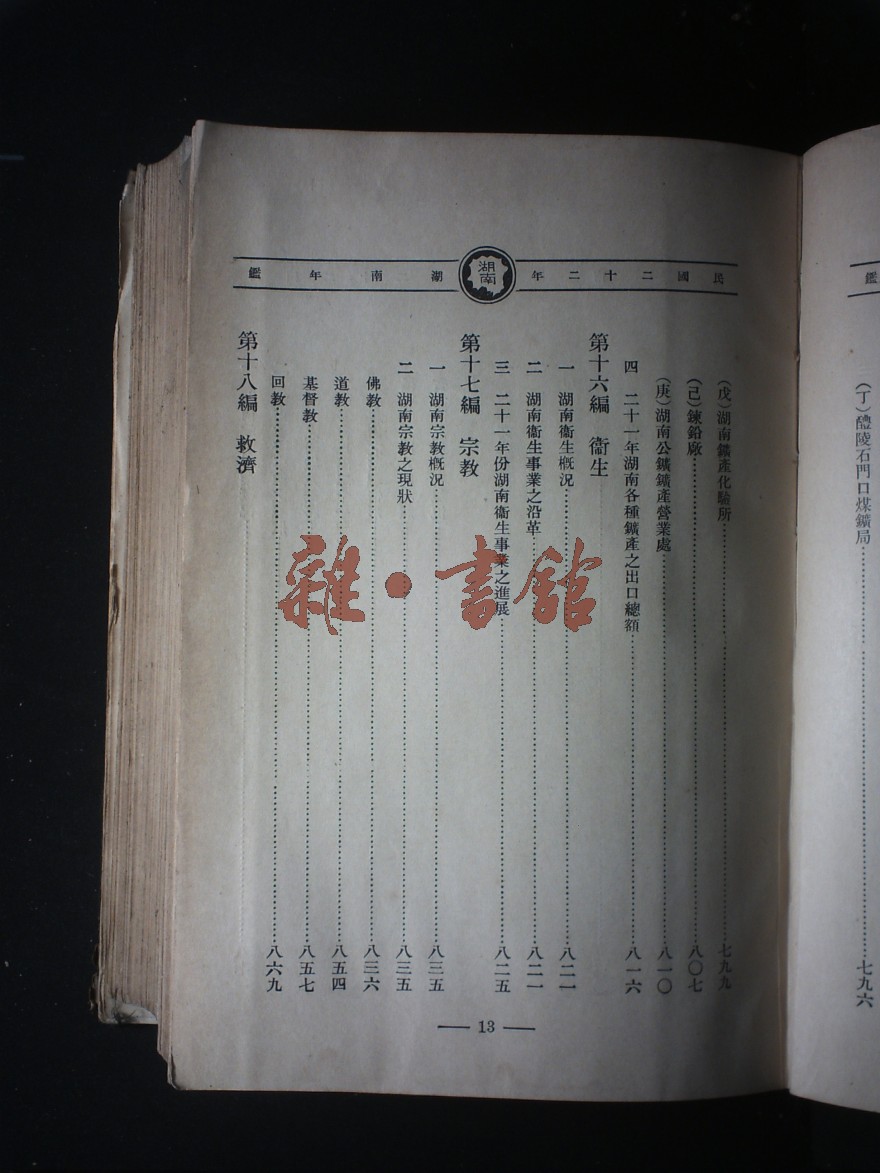 民國二十二年湖南年鑑
湖南
（戊）湖南鑛產化驗所……七九九
（己）鍊鉛廠……八〇七
（庚）湖南公鑛鑛產營業處……八一〇
四　二十一年湖南各種鑛產之出口總額……八一六
第十六編　衞生
一　湖南衞生概況……八二一
二　湖南衞生事業之沿革……八二一
三　二十一年份湖南衞生事業之進展……八二五
第十七編　宗教
一　湖南宗教概況……八三五
二　湖南宗教之現狀……八三五
佛教……八三六
道教……八五四
基督教……八五七
回教……八六九
第十八編　救濟
— 13 —
鑑
（丁）醴陵石門口煤鑛局……七九六
雜·書館